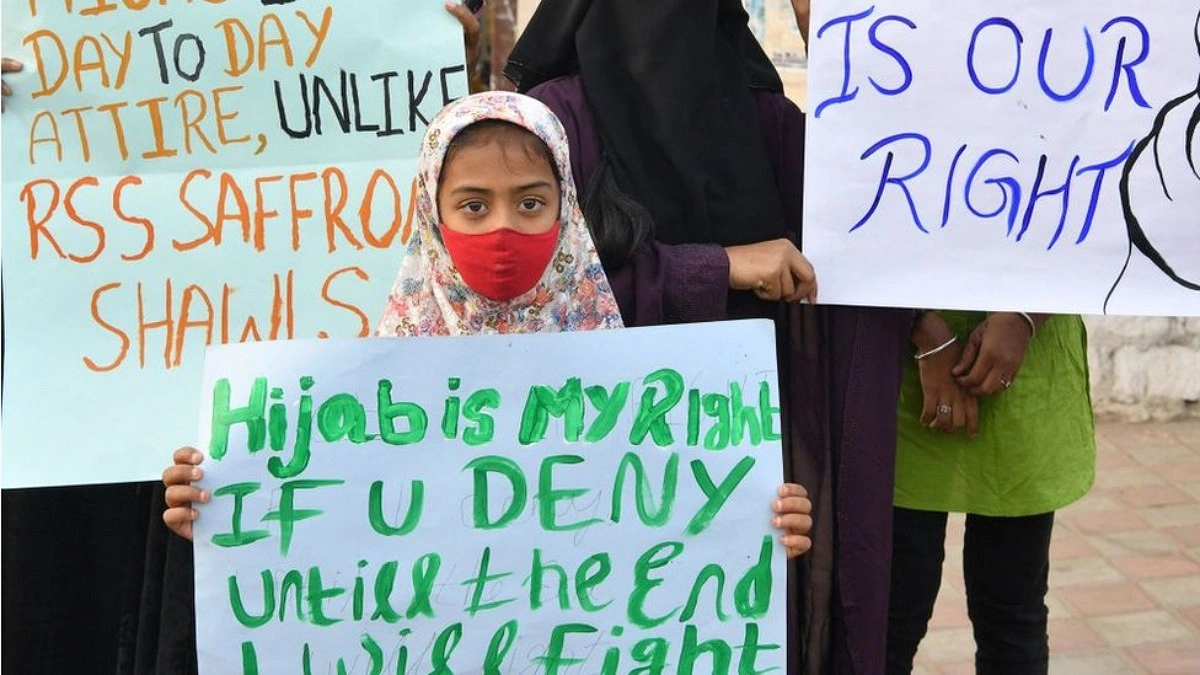 DAY TO DAY
ATTIRE, UNLIKE
RSS SAFFRO
SHAWLS
IS OUR
RIGHT
Hijab is My Right
IF U DENY
untill the End
I will Fight